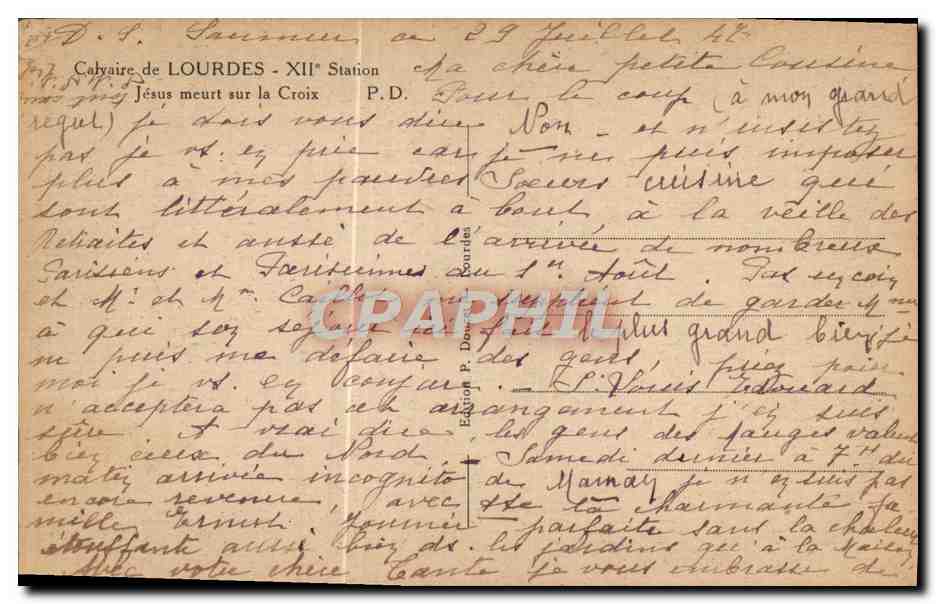 D. S. Saumur ce 29 Juillet 47
Calvaire de LOURDES - XIIe Station
Jésus meurt sur la Croix P. D.
Ma chère petite Cousine
Pour le coup (à mon grand
regret) je dois vous dire Non - et n'insistez
pas je vs. en prie car je ne puis imposer
plus à mes pauvres Soeurs cuisine qui
sont littéralement à bout à la veille des
Retraites et aussi de l'arrivée de nombreux
Parisiens et Parisiennes du 1er Août.
et Mr et Mme de garder Mme
à qui son séjour ici fait le plus grand bien je
ne puis me défaire des gens, priez pour
moi je vs. en conjure. - St Louis Edouard
n'acceptera pas cet arrangement j'en suis
sûre A vrai dire, les gens des Mauges valent
bien ceux du Nord - Samedi dernier à 7H du
matin arrivée incognito de je n'en suis pas
encore revenue, avec sa charmante fa-
mille Ernest, journée parfaite sans la chaleur
étouffante aussi bien ds. les jardins qu'à la Maison
Avec votre chère Tante je vous embrasse de
Edition P. Lourdes
CRAPHIL